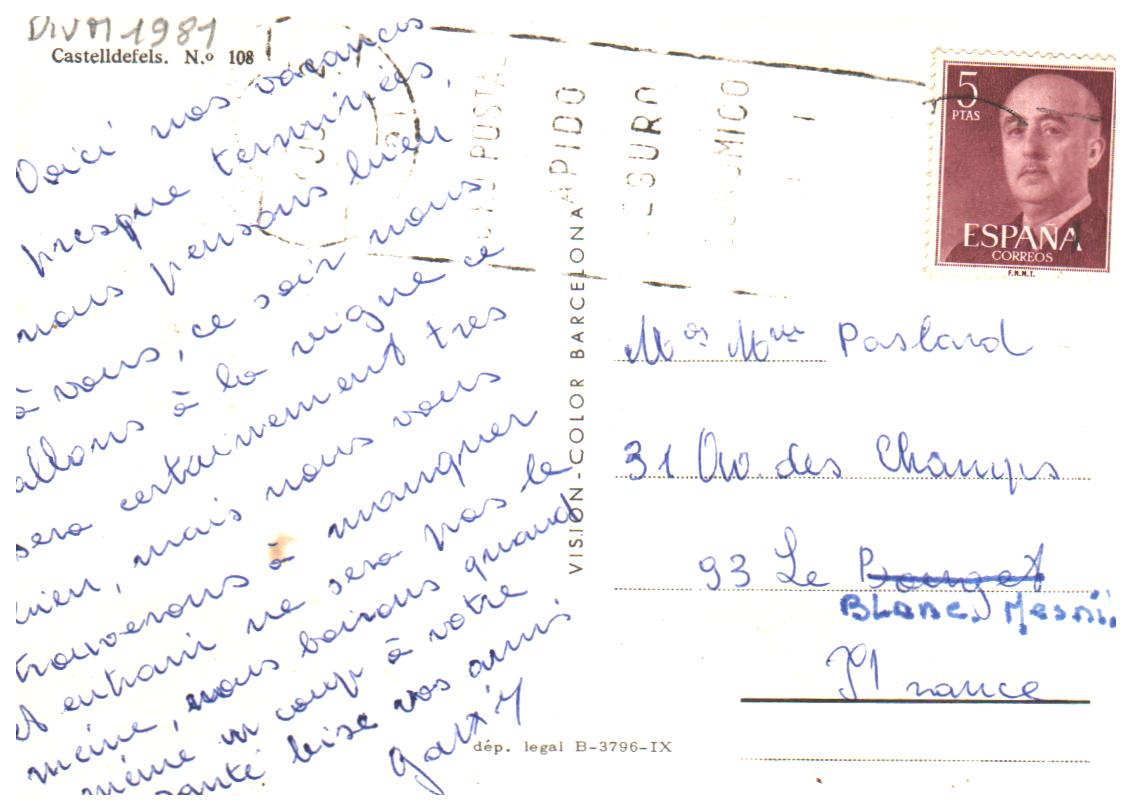 DIVM 1981
Castelldefels. N.º 108
Voici nos vacances
presque terminées,
nous pensons bien
à vous, ce soir nous
allons à la vigne ce
sera certainement tres
bien, mais nous vous
trouverons à manquer
et entrain ne sera pas le
meine, nous boirons quand
même un coup à votre
santé bise vos amis
VISION-COLOR BARCELONA
dép. legal B-3796-IX
POSTAL
APIDO
GURO
OMICO
5
PTAS
ESPAÑA
CORREOS
F.N.M.T.
Mr et Mme Pastard
31 Av. des Champs
93 Le Bourget
BLANC. Mesni.
France